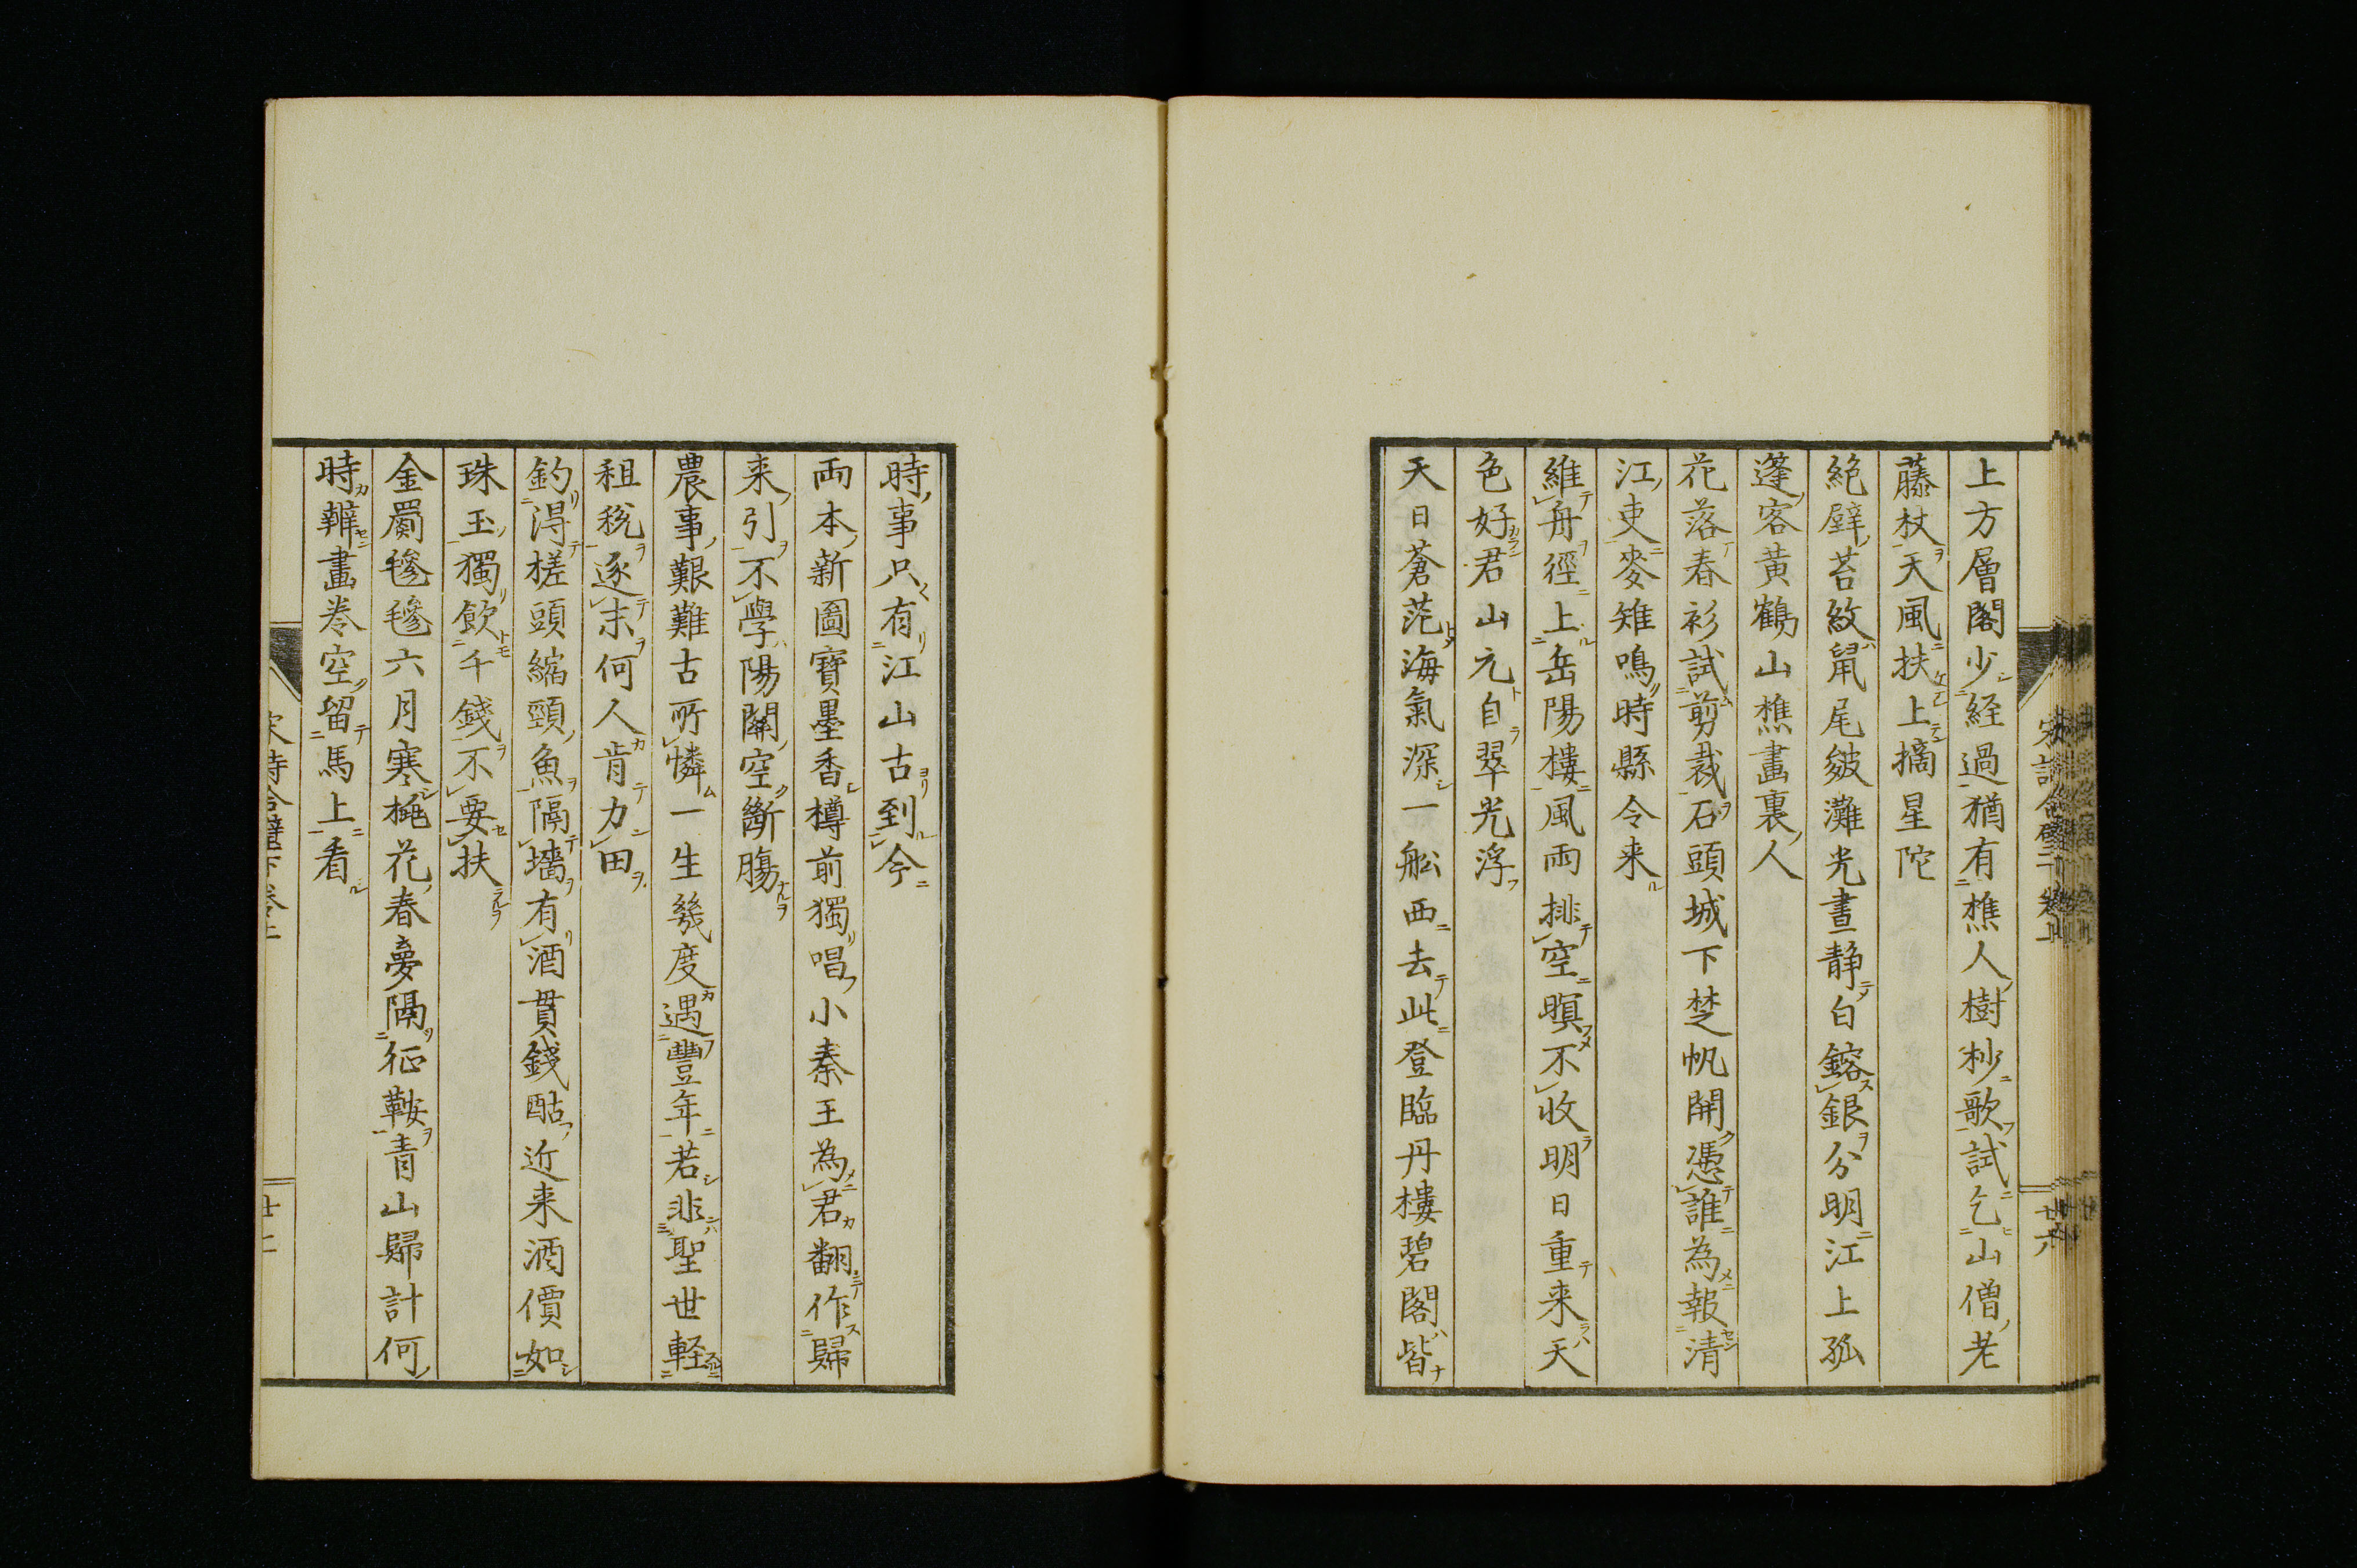 上方層閣少経過猶有樵人樹杪歌試乞山僧老
藤杖天風扶上摘星陀
絶壁苔紋鼠尾皴灘光晝静白鎔銀分明江上孤
篷客黄鶴山樵畫裏人
花落春衫試剪裁石頭城下楚帆開憑誰為報清
江吏麥雉鳴時縣令来
維舟徑上岳陽樓風雨排空暝不收明日重来天
色好君山元自翠光浮
天日蒼茫海氣深一船西去此登臨丹樓碧閣皆
時事只有江山古到今
両本新圖寶墨香樽前獨唱小秦王為君翻作歸
来引不學陽關空斷膓
農事艱難古所憐一生幾度遇豐年若非聖世軽
租税逐末何人肯力田
釣得槎頭縮頸魚隔墻有酒貫錢酤近来酒價如
珠玉獨飲千錢不要扶
金罽毿毿六月寒桃花春夢隔征鞍青山歸計何
時辦畫巻空留馬上看